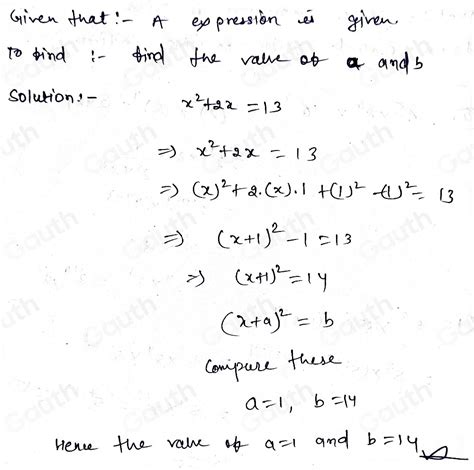 Given that :- A expression is given.
To find :- find the value of a and b
Solution :- x²+2x = 13
⇒ x²+2x = 13
⇒ (x)²+2.(x).1 +(1)² -(1)² = 13
⇒ (x+1)² - 1 = 13
⇒ (x+1)² = 14
(x+a)² = b
Compare these
a=1, b=14
Hence the value of a=1 and b=14